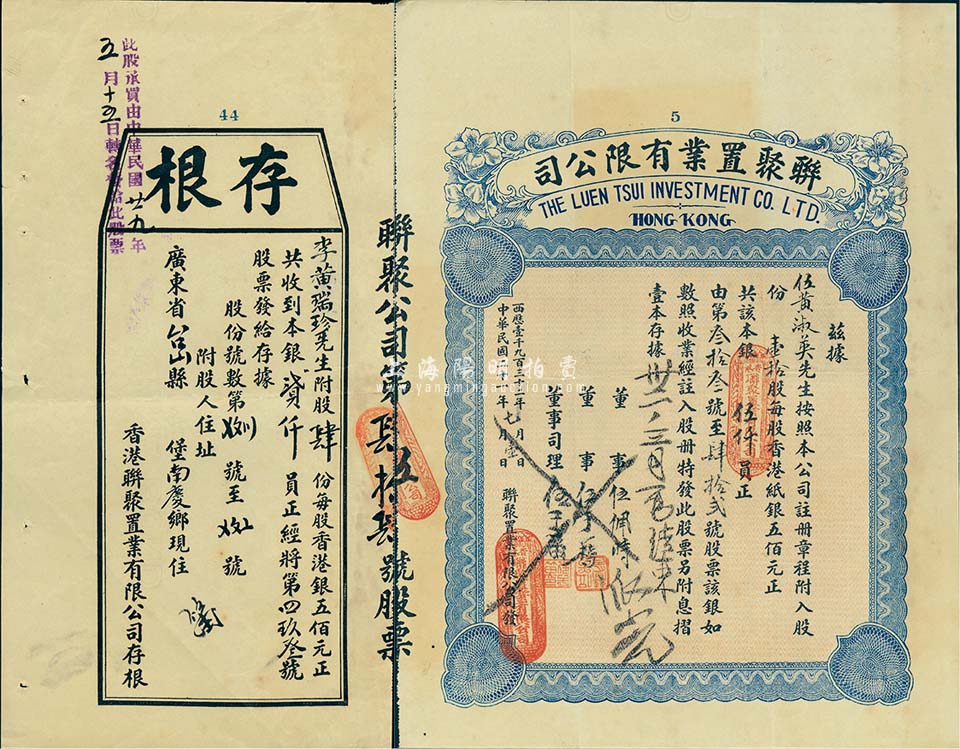 5
聯聚置業有限公司
THE LUEN TSUI INVESTMENT CO. LTD.
HONG KONG
茲據
伍黃淑英先生按照本公司註冊章程附入股
份壹拾股每股香港紙銀五佰元正
共該本銀伍仟員正
由第叁拾叁號至肆拾弍號股票該銀如
數照收業經註入股册特發此股票另附息摺
壹本存據
董事
董事
董事司理
西歷壹千九百三十二年七月壹日
中華民國二十一年七月壹日
聯聚置業有限公司發
聯聚公司第肆拾肆號股票
44
存根
李黃瑞珍先生附股肆份每股香港銀五佰元正
共收到本銀貳仟員正經將第四玖叁號
股票發給存據
股份號數第號至號
附股人住址
廣東省台山縣堡南慶鄉現住
香港聯聚置業有限公司存根
此股承買由中華民國廿九年
五月十五日轉名發給此股票
海陽明拍賣
www.yangmingauction.com